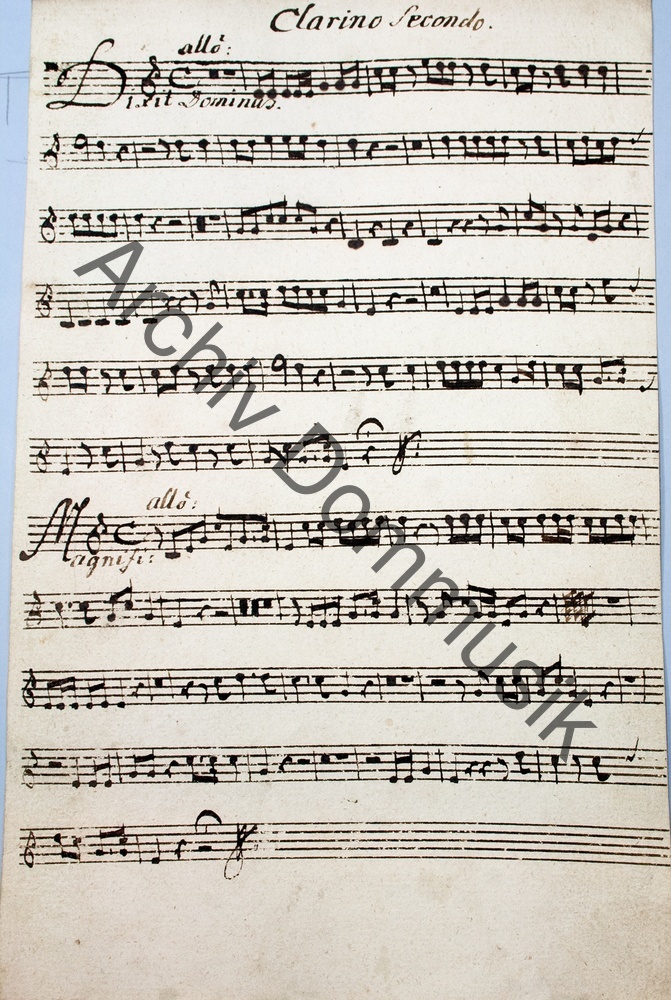 Clarino Secondo.
allo:
Dixit Dominus.
allo:
Magnifi:
Archiv Dommusik